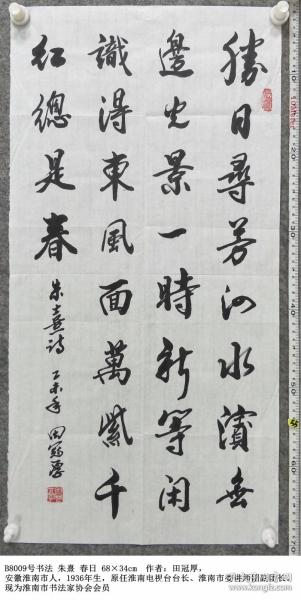 勝日尋芳泗水濱無
邊光景一時新等閑
識得東風面萬紫千
紅總是春
朱熹詩 乙未年 田冠厚
B8009号书法 朱熹 春日 68×34cm 作者：田冠厚，
安徽淮南市人，1936年生，原任淮南电视台台长、淮南市委讲师团副团长、
现为淮南市书法家协会会员